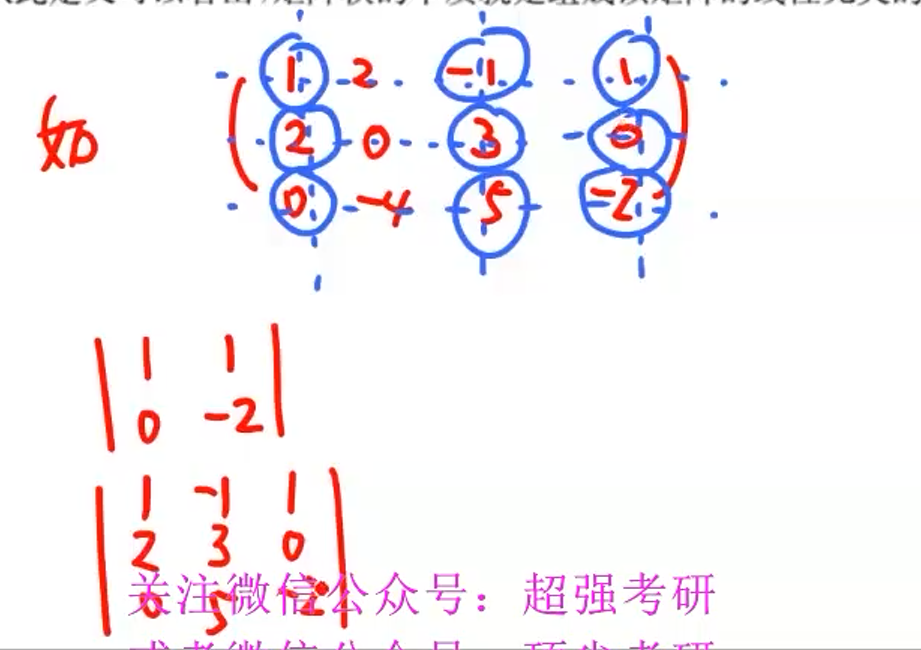 如
1 2 -1 1
2 0 3 0
0 -4 5 -2
1 1
0 -2
1 -1 1
2 3 0
0 5 -2
关注微信公众号：超强考研